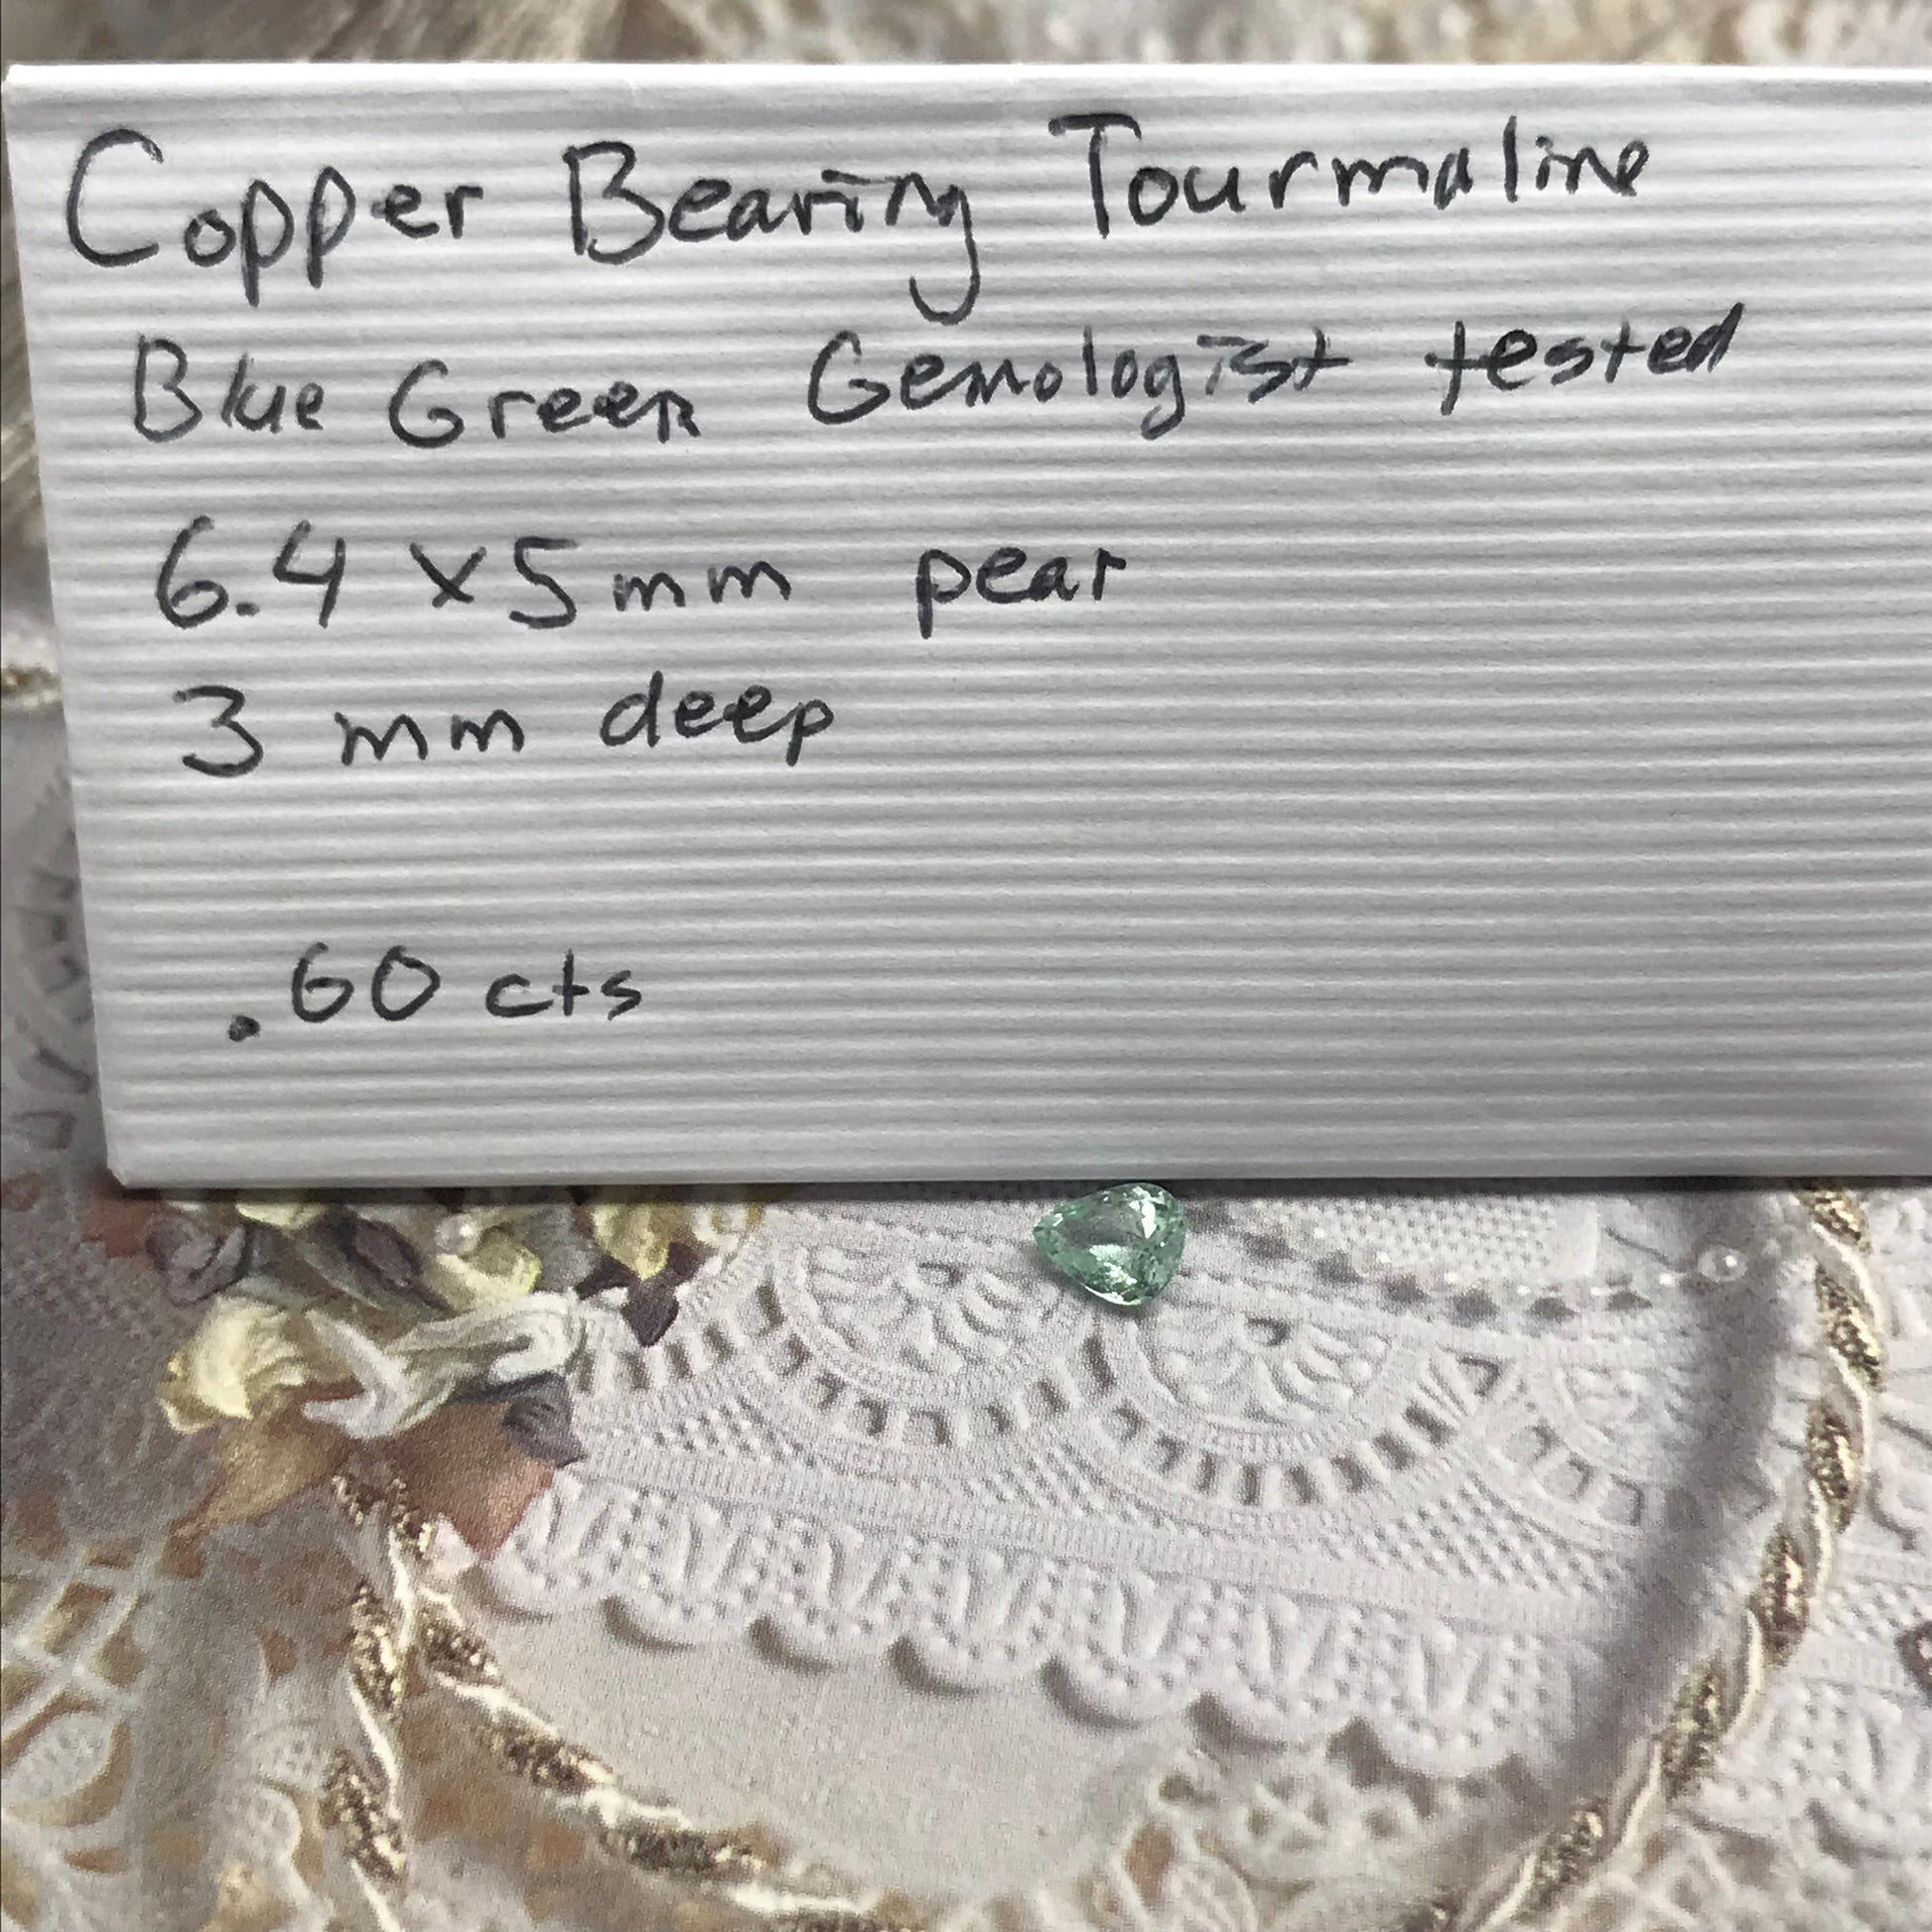 Copper Bearing Tourmaline
Blue Green Gemologist tested
6.4 x 5 mm pear
3 mm deep
.60 cts